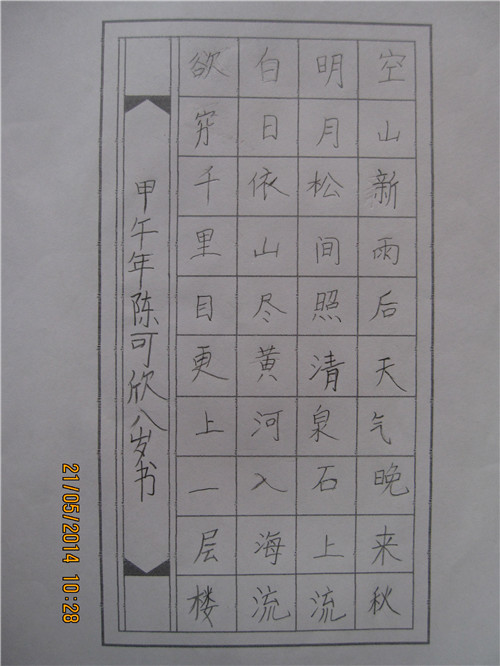 空山新雨后天气晚来秋
明月松间照清泉石上流
白日依山尽黄河入海流
欲穷千里目更上一层楼
甲午年陈可欣八岁书
21/05/2014 10:28